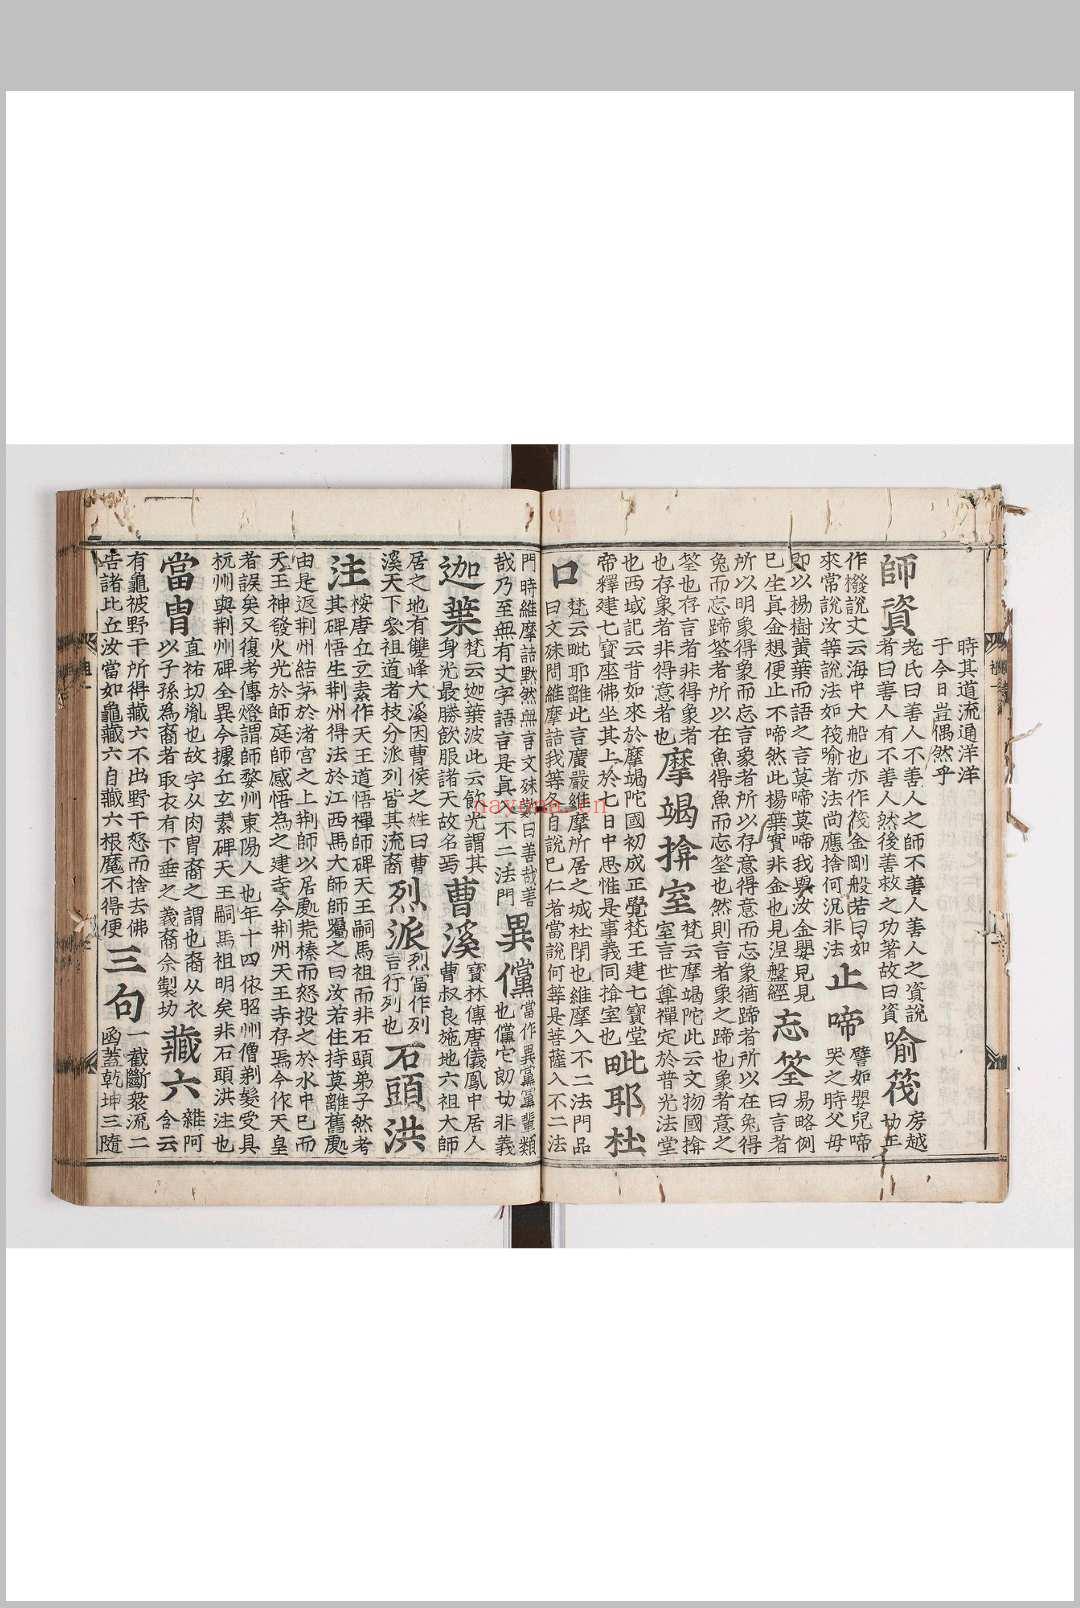 時其道流通洋洋
于今日豈偶然乎
師資
老氏曰善人不善人之師不善人善人之資說
者曰善人有不善人然後善救之功著故曰資
喻筏
房越切正
作橃說文云海中大船也亦作筏金剛般若曰如
來常說汝等說法如筏喻者法尚應捨何況非法
止啼
譬如嬰兒啼
哭之時父母
即以楊樹黃葉而語之言莫啼莫啼我與汝金嬰兒見
巳生真金想便止不啼然此楊葉實非金也見涅盤經
忘筌
易略例
曰言者
所以明象得象而忘言象者所以存意得意而忘象猶蹄者所以在兔得
兔而忘蹄筌者所以在魚得魚而忘筌也然則言者象之蹄也象者意之
筌也存言者非得象者
也存象者非得意者也
摩竭揜室
梵云摩竭陀此云文物國揜
室言世尊禪定於普光法堂
也西域記云昔如來於摩竭陀國初成正覺梵王建七寶堂
帝釋建七寶座佛坐其上於七日中思惟是事義同揜室也
毗耶杜
口
梵云毗耶離此言廣嚴維摩所居之城杜閉也維摩入不二法門品
曰文殊問維摩詰我等各自說巳仁者當說何等是菩薩入不二法
門時維摩詰默然無言文殊歎曰善哉善
哉乃至無有文字語言是真入不二法門
異儻
當作異黨黨輩類
也儻它朗切非義
迦葉
梵云迦葉波此云飲光謂其
身光最勝飲服諸天故名焉
曹溪
寶林傳唐儀鳳中居人
曹叔良施地六祖大師
居之地有雙峰大溪因曹侯之姓曰曹
溪天下參祖道者枝分派列皆其流裔
烈派
烈當作列
言行列也
石頭洪
注
桉唐丘玄素作天王道悟禪師碑天王嗣馬祖而非石頭弟子然考
其碑悟生荆州得法於江西馬大師師屬之曰汝若住持莫離舊處
由是返荆州結茅於渚宮之上荆師以居處荒榛而怒投之於水中巳而
天王神發火光於師庭師感悟為之建寺今荆州天王寺存焉今作天皇
者誤矣又復考傳燈謂師婺州東陽人也年十四依昭州僧剃髮受具
杭州與荆州碑全異今據丘玄素碑天王嗣馬祖明矣非石頭洪注也
當胄
直祐切胤也故字从肉胄裔之謂也裔从衣
以子孫為裔者取衣有下垂之義裔余製切
藏六
雜阿
含云
有龜被野干所得藏六不出野干怒而捨去佛
告諸比丘汝當如龜藏六自藏六根魔不得便
三句
一截斷衆流二
函蓋乾坤三隨